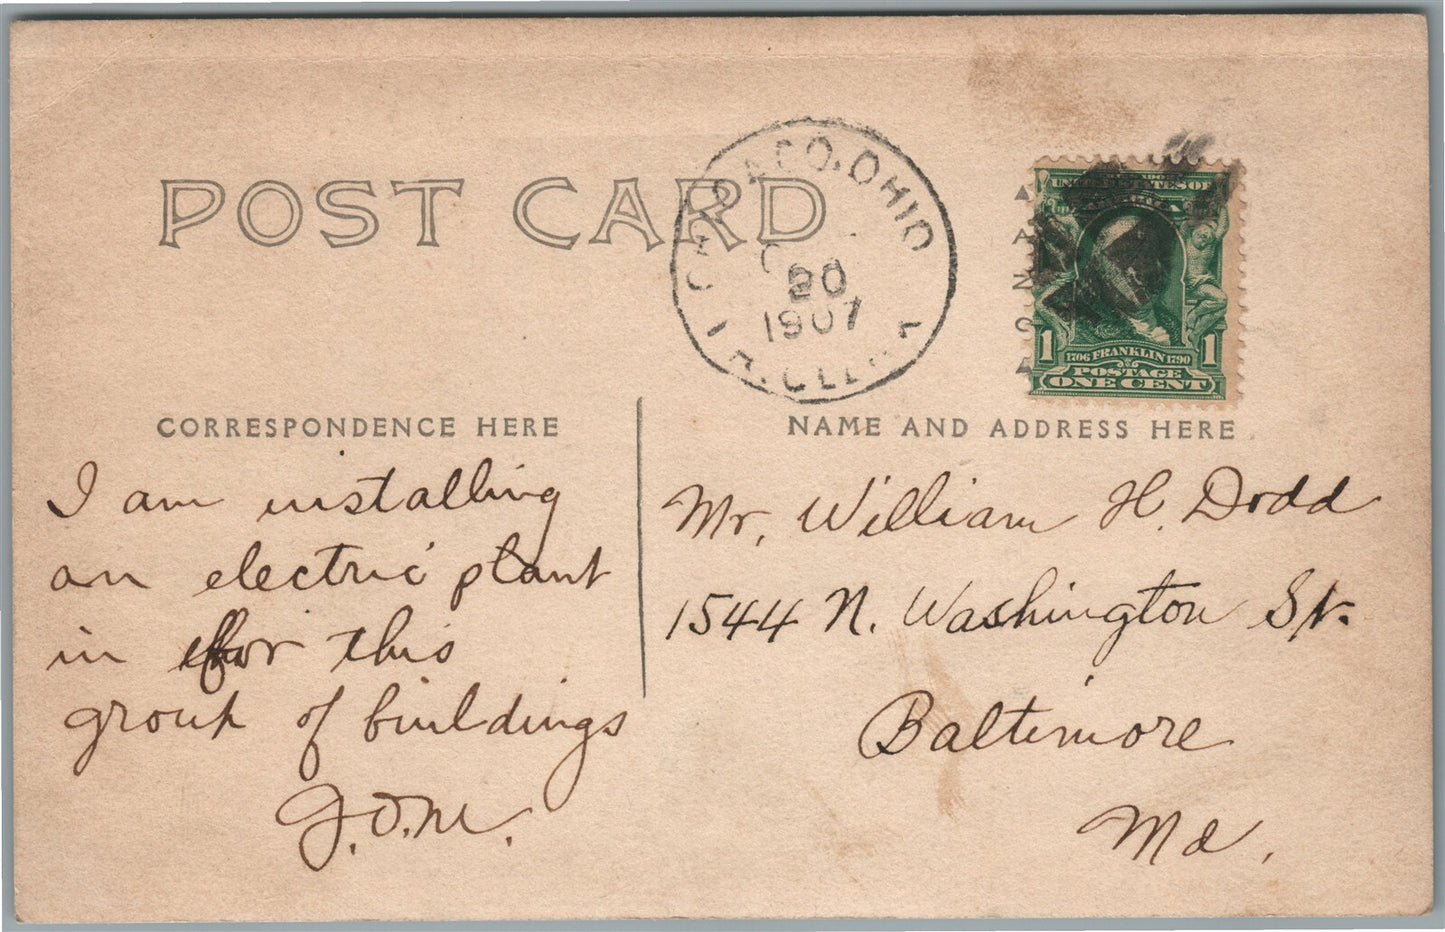 POST CARD
OHIO
20
1907
UNITED STATES OF
AMERICA
1 1706 FRANKLIN 1790 1
POSTAGE
ONE CENT
AZO
CORRESPONDENCE HERE
NAME AND ADDRESS HERE
I am installing
an electric plant
in for this
group of buildings
J.O.M.
Mr. William H. Dodd
1544 N. Washington St.
Baltimore
Md.